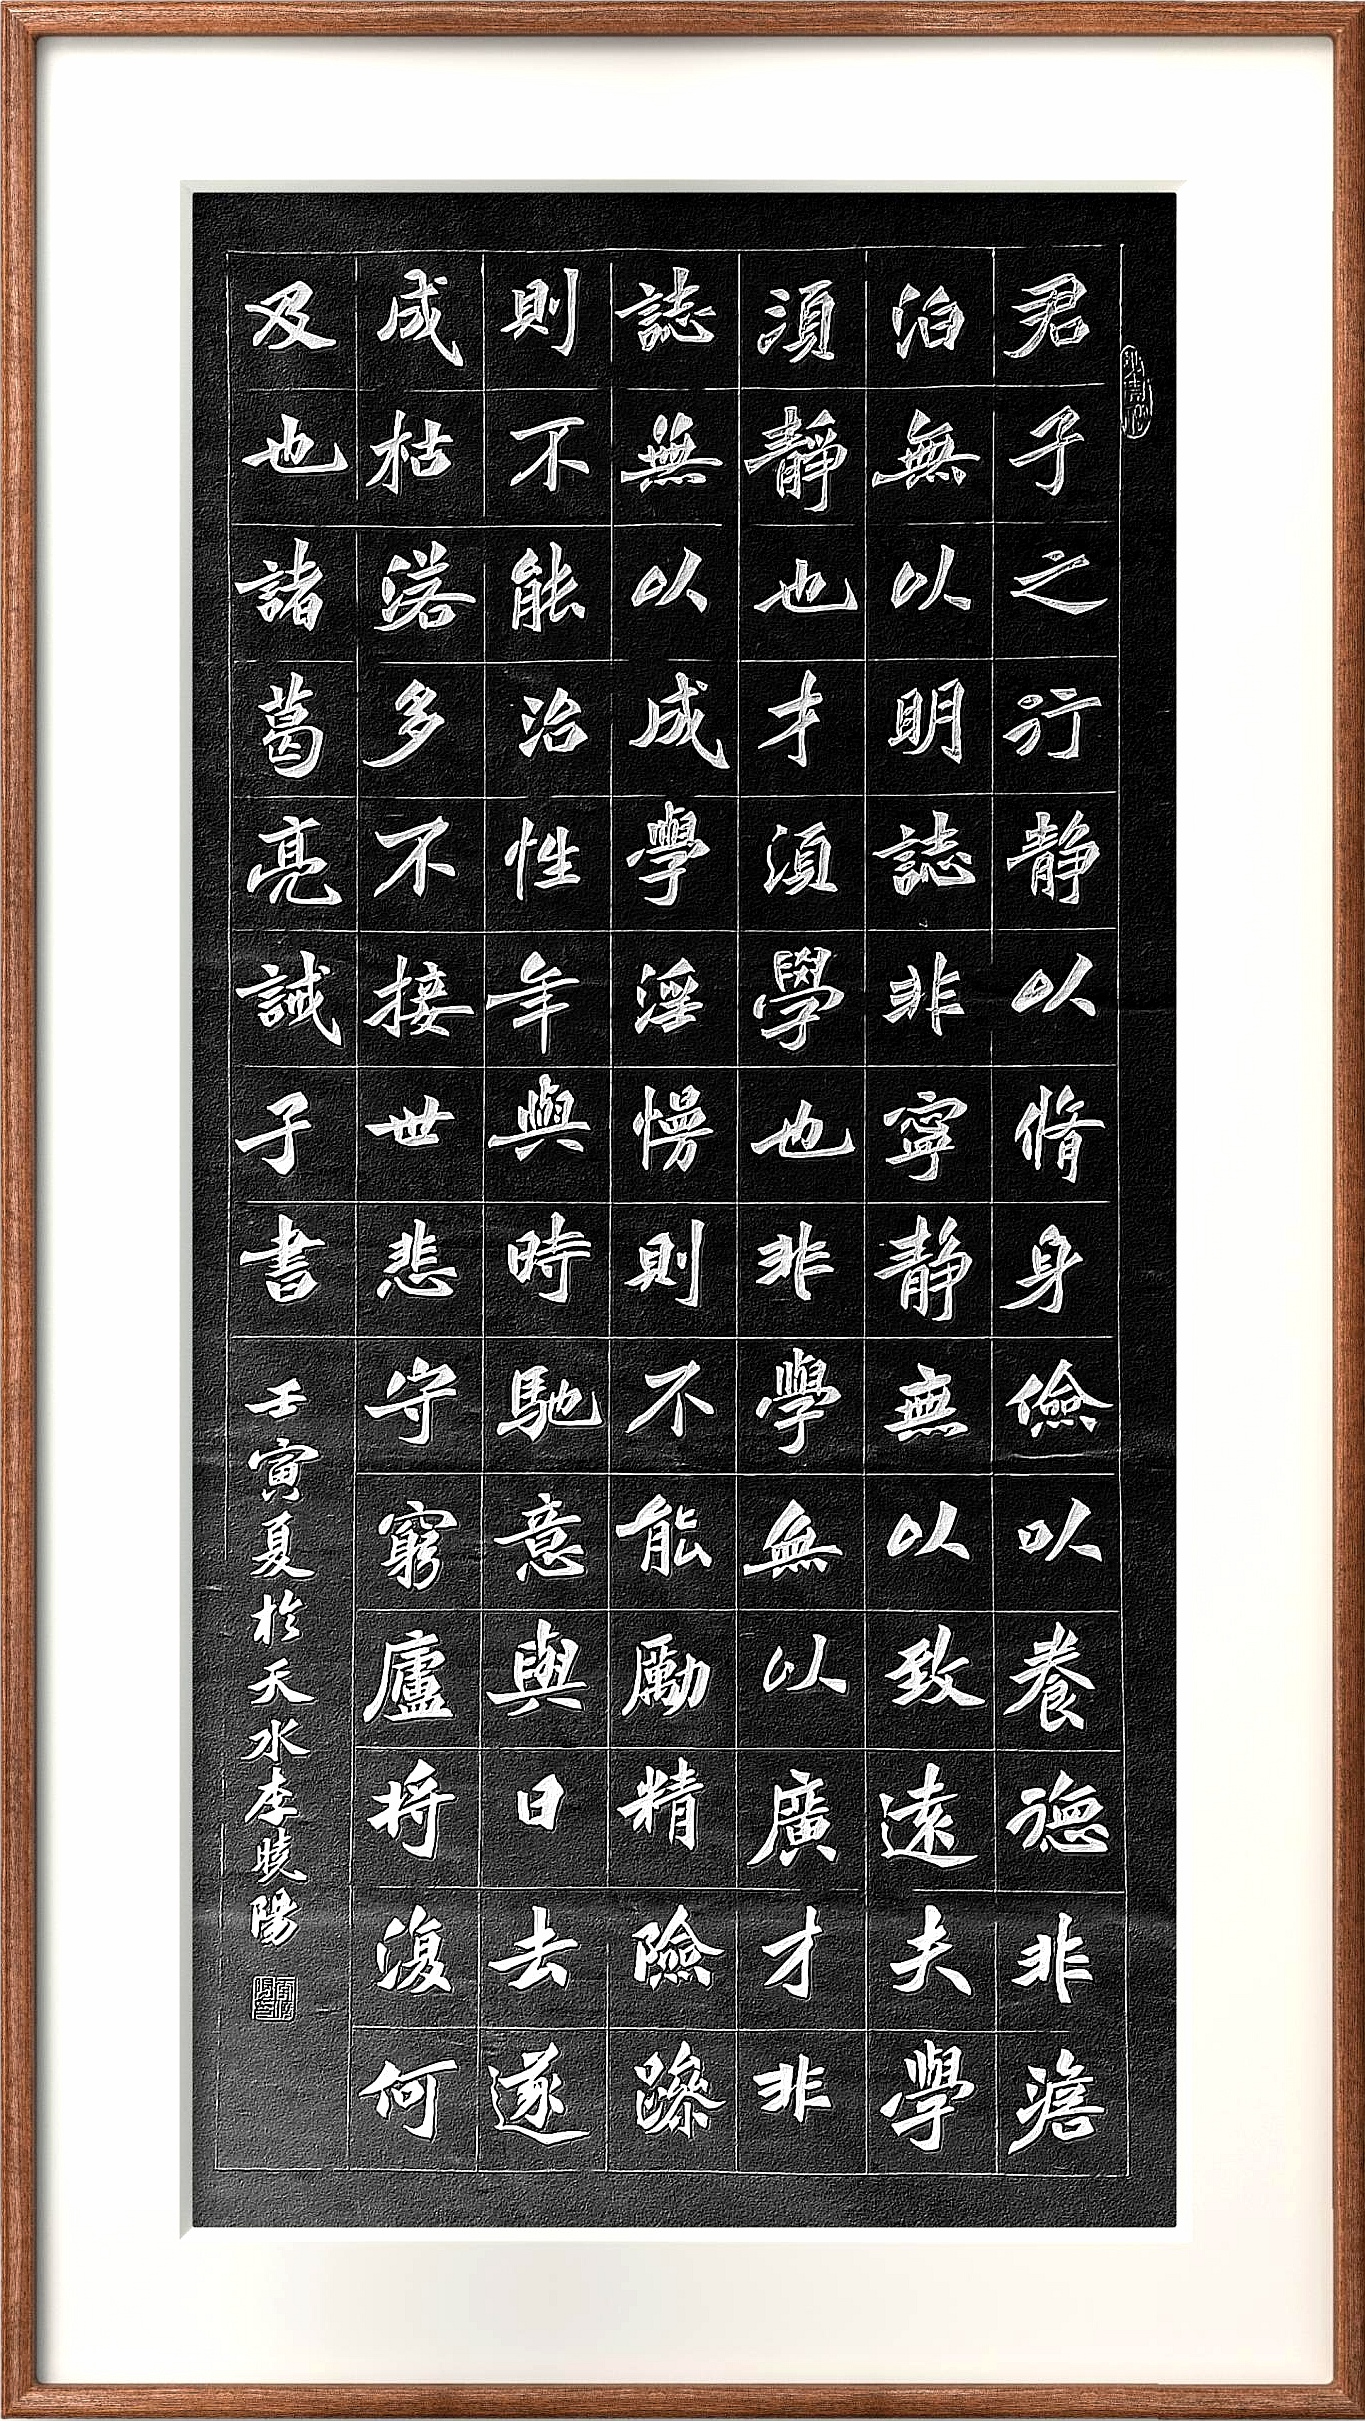 君子之行静以脩身儉以養德非澹
泊無以明誌非寧静無以致遠夫學
須静也才須學也非學無以廣才非
誌無以成學淫慢則不能勵精險躁
則不能治性年與時馳意與日去遂
成枯落多不接世悲守窮廬将復何
及也諸葛亮誡子書
壬寅夏於天水李曉陽